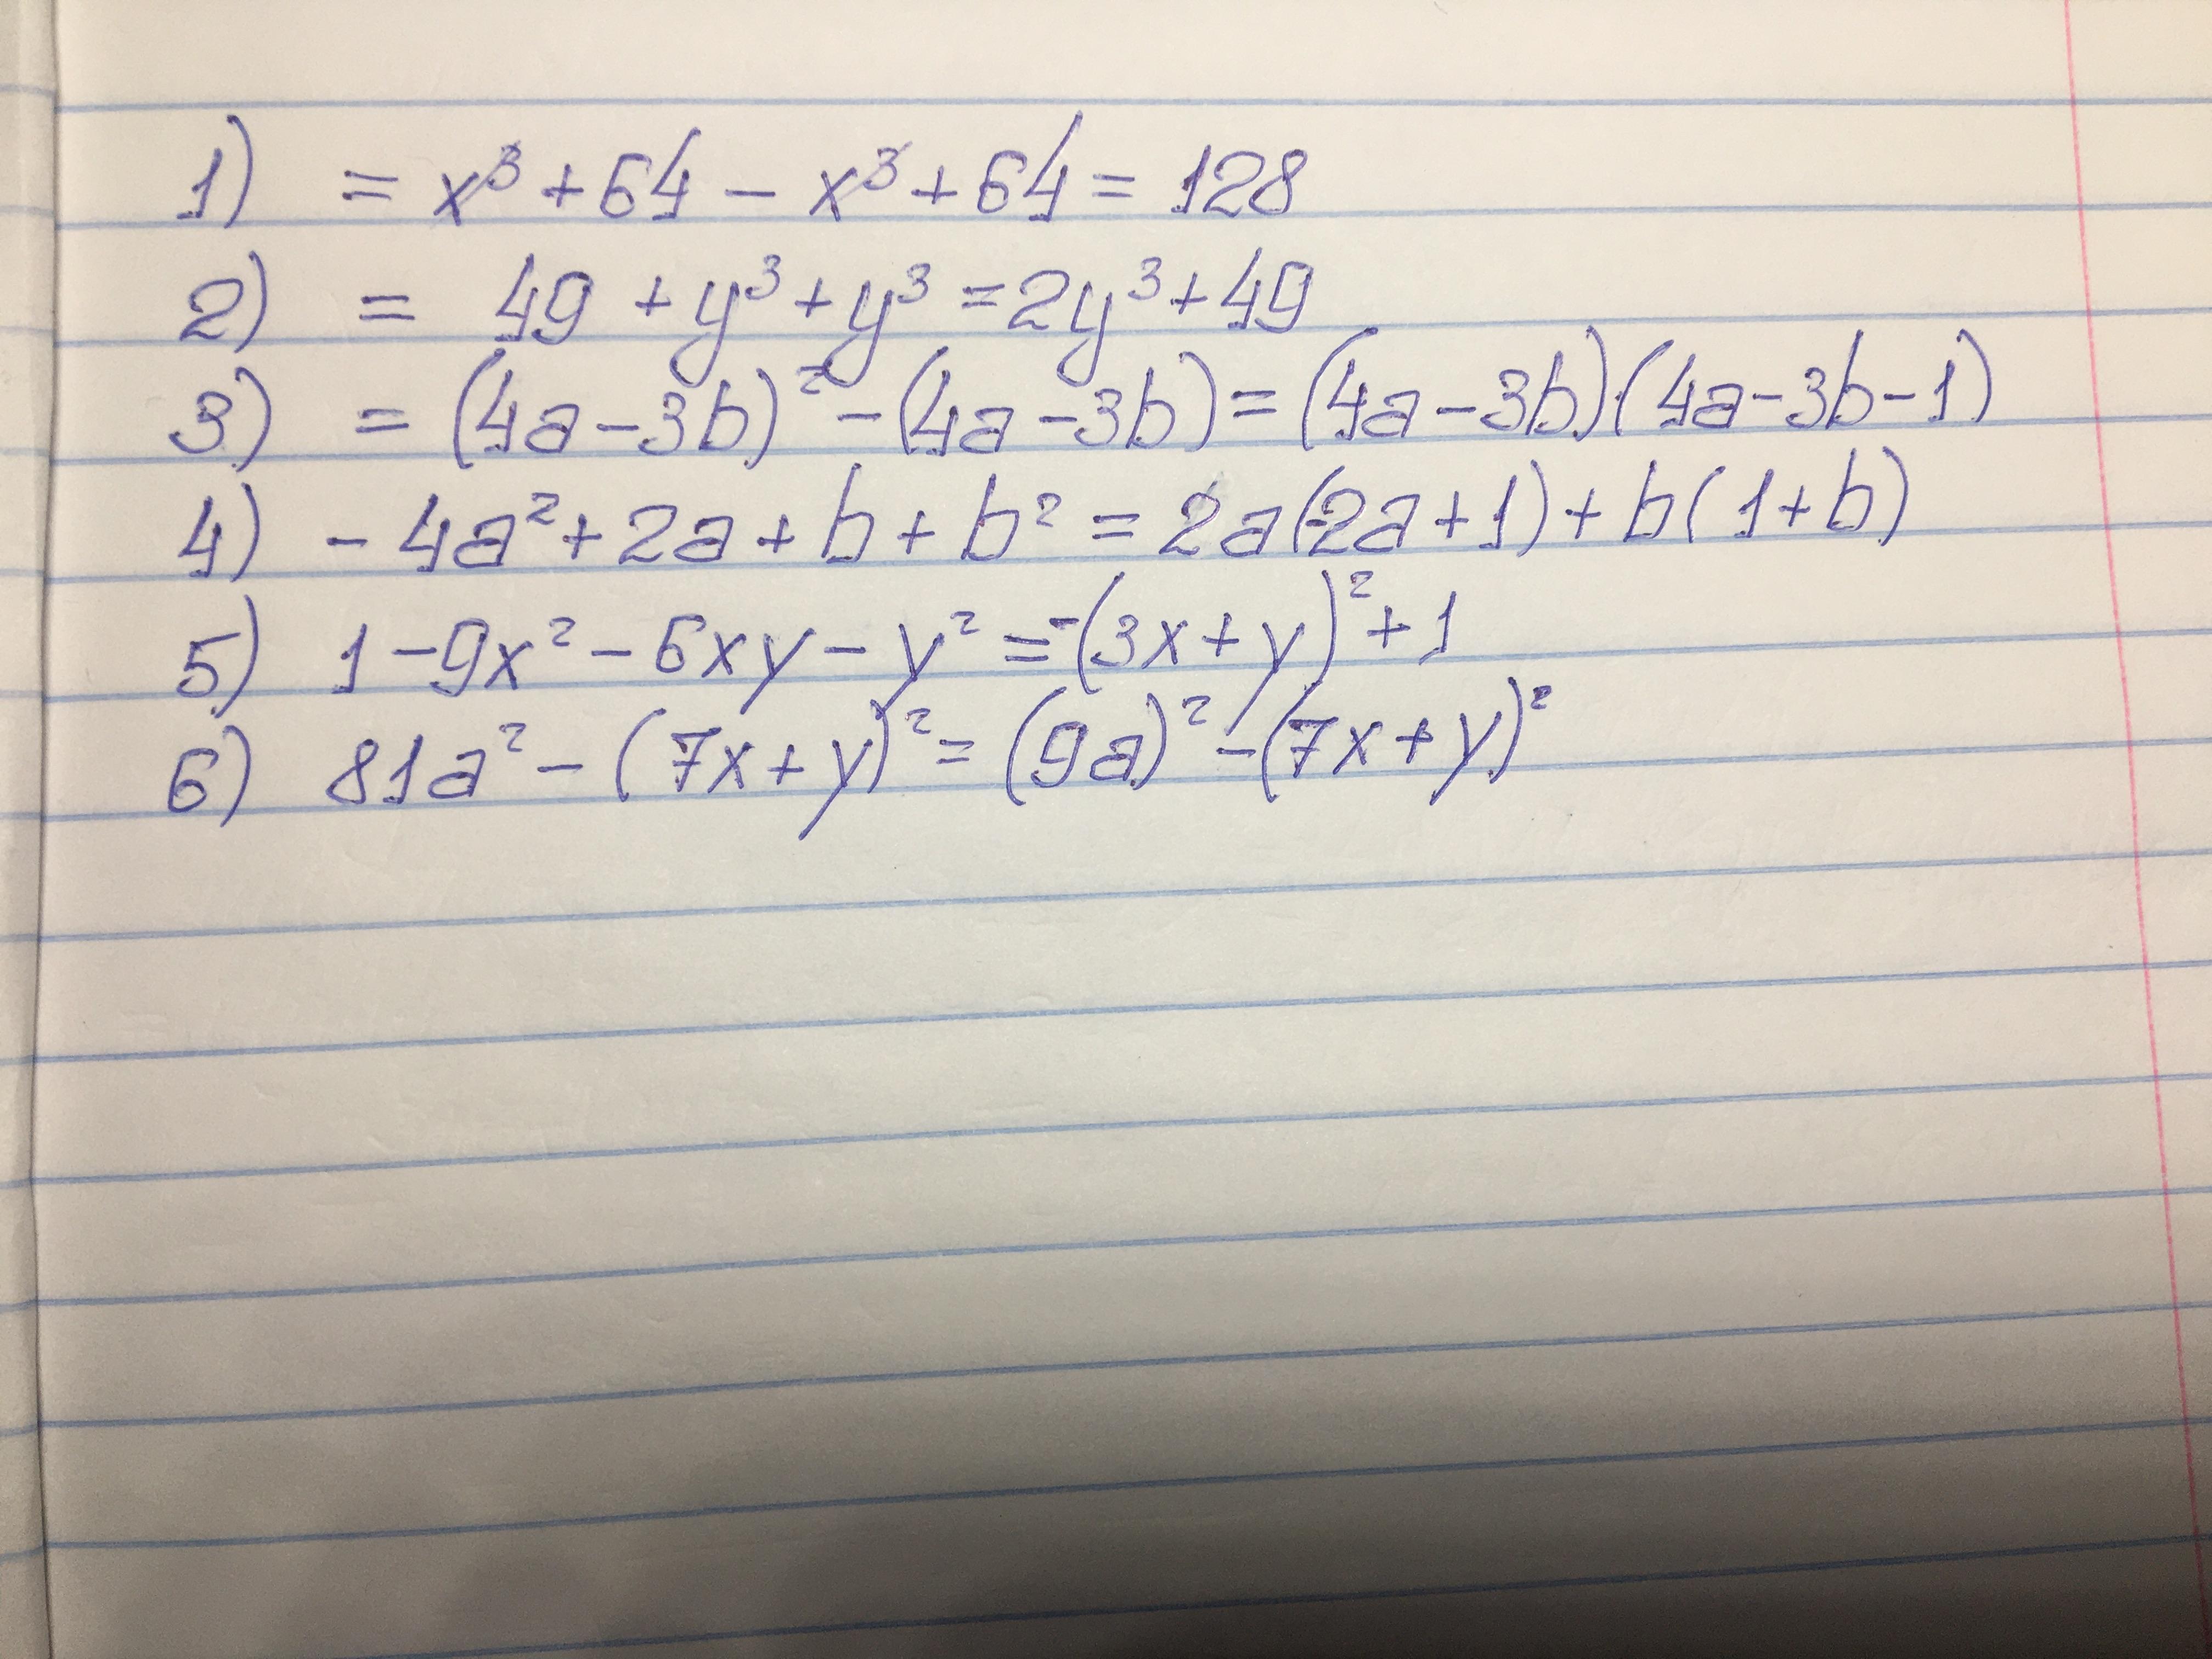 1) = x³ + 64 - x³ + 64 = 128
2) = 49 + y³ + y³ = 2y³ + 49
3) = (4a - 3b)² - (4a - 3b) = (4a - 3b)(4a - 3b - 1)
4) - 4a² + 2a + b + b² = 2a(-2a + 1) + b(1 + b)
5) 1 - 9x² - 6xy - y² = -(3x + y)² + 1
6) 81a² - (7x + y)² = (9a)² - (7x + y)²